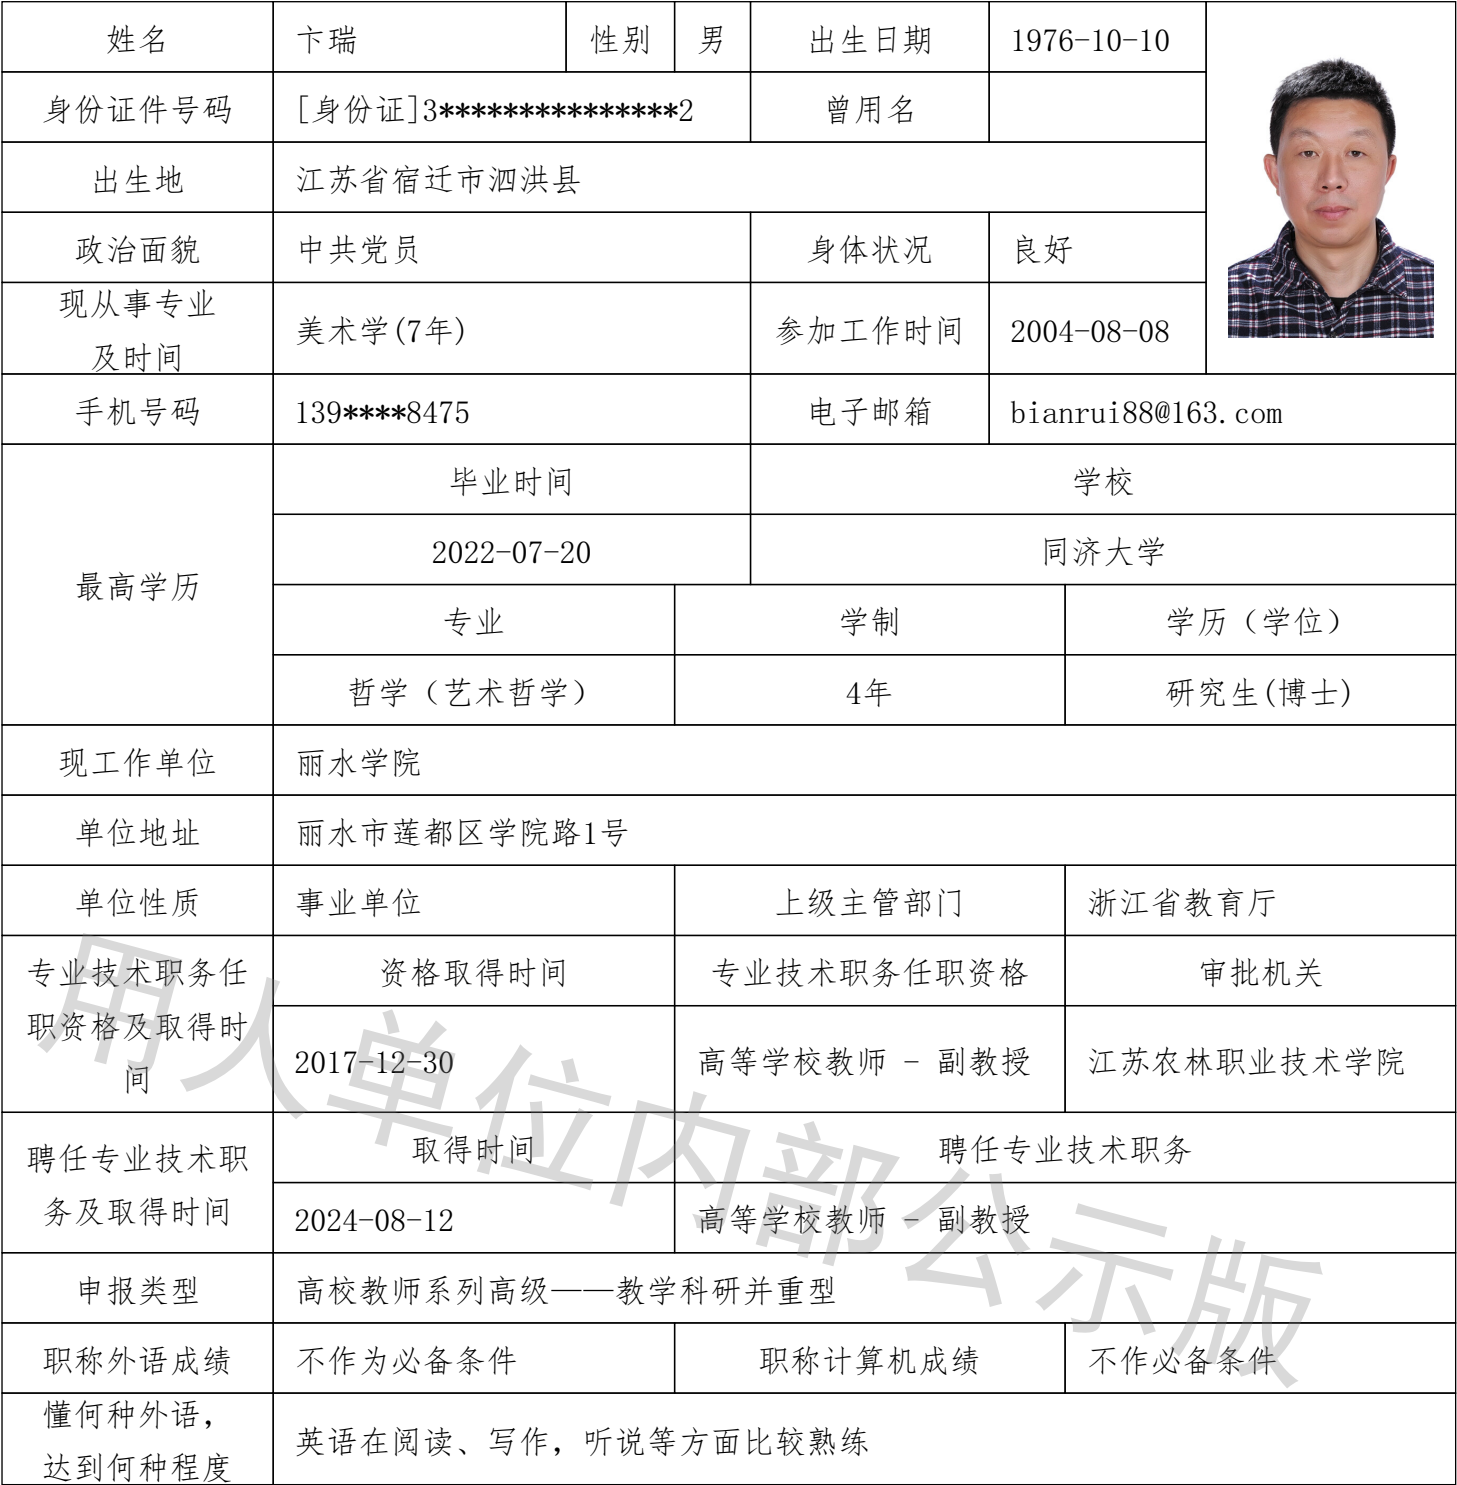 姓名 卞瑞 性别 男 出生日期 1976-10-10
身份证件号码 [身份证]3***************2 曾用名
出生地 江苏省宿迁市泗洪县
政治面貌 中共党员 身体状况 良好
现从事专业
及时间 美术学(7年) 参加工作时间 2004-08-08
手机号码 139****8475 电子邮箱 bianrui88@163.com
最高学历
毕业时间 学校
2022-07-20 同济大学
专业 学制 学历（学位）
哲学（艺术哲学） 4年 研究生(博士)
现工作单位 丽水学院
单位地址 丽水市莲都区学院路1号
单位性质 事业单位 上级主管部门 浙江省教育厅
专业技术职务任
职资格及取得时
间
资格取得时间 专业技术职务任职资格 审批机关
2017-12-30 高等学校教师 - 副教授 江苏农林职业技术学院
聘任专业技术职
务及取得时间
取得时间 聘任专业技术职务
2024-08-12 高等学校教师 - 副教授
申报类型 高校教师系列高级——教学科研并重型
职称外语成绩 不作为必备条件 职称计算机成绩 不作必备条件
懂何种外语，
达到何种程度 英语在阅读、写作，听说等方面比较熟练
用人单位内部公示版